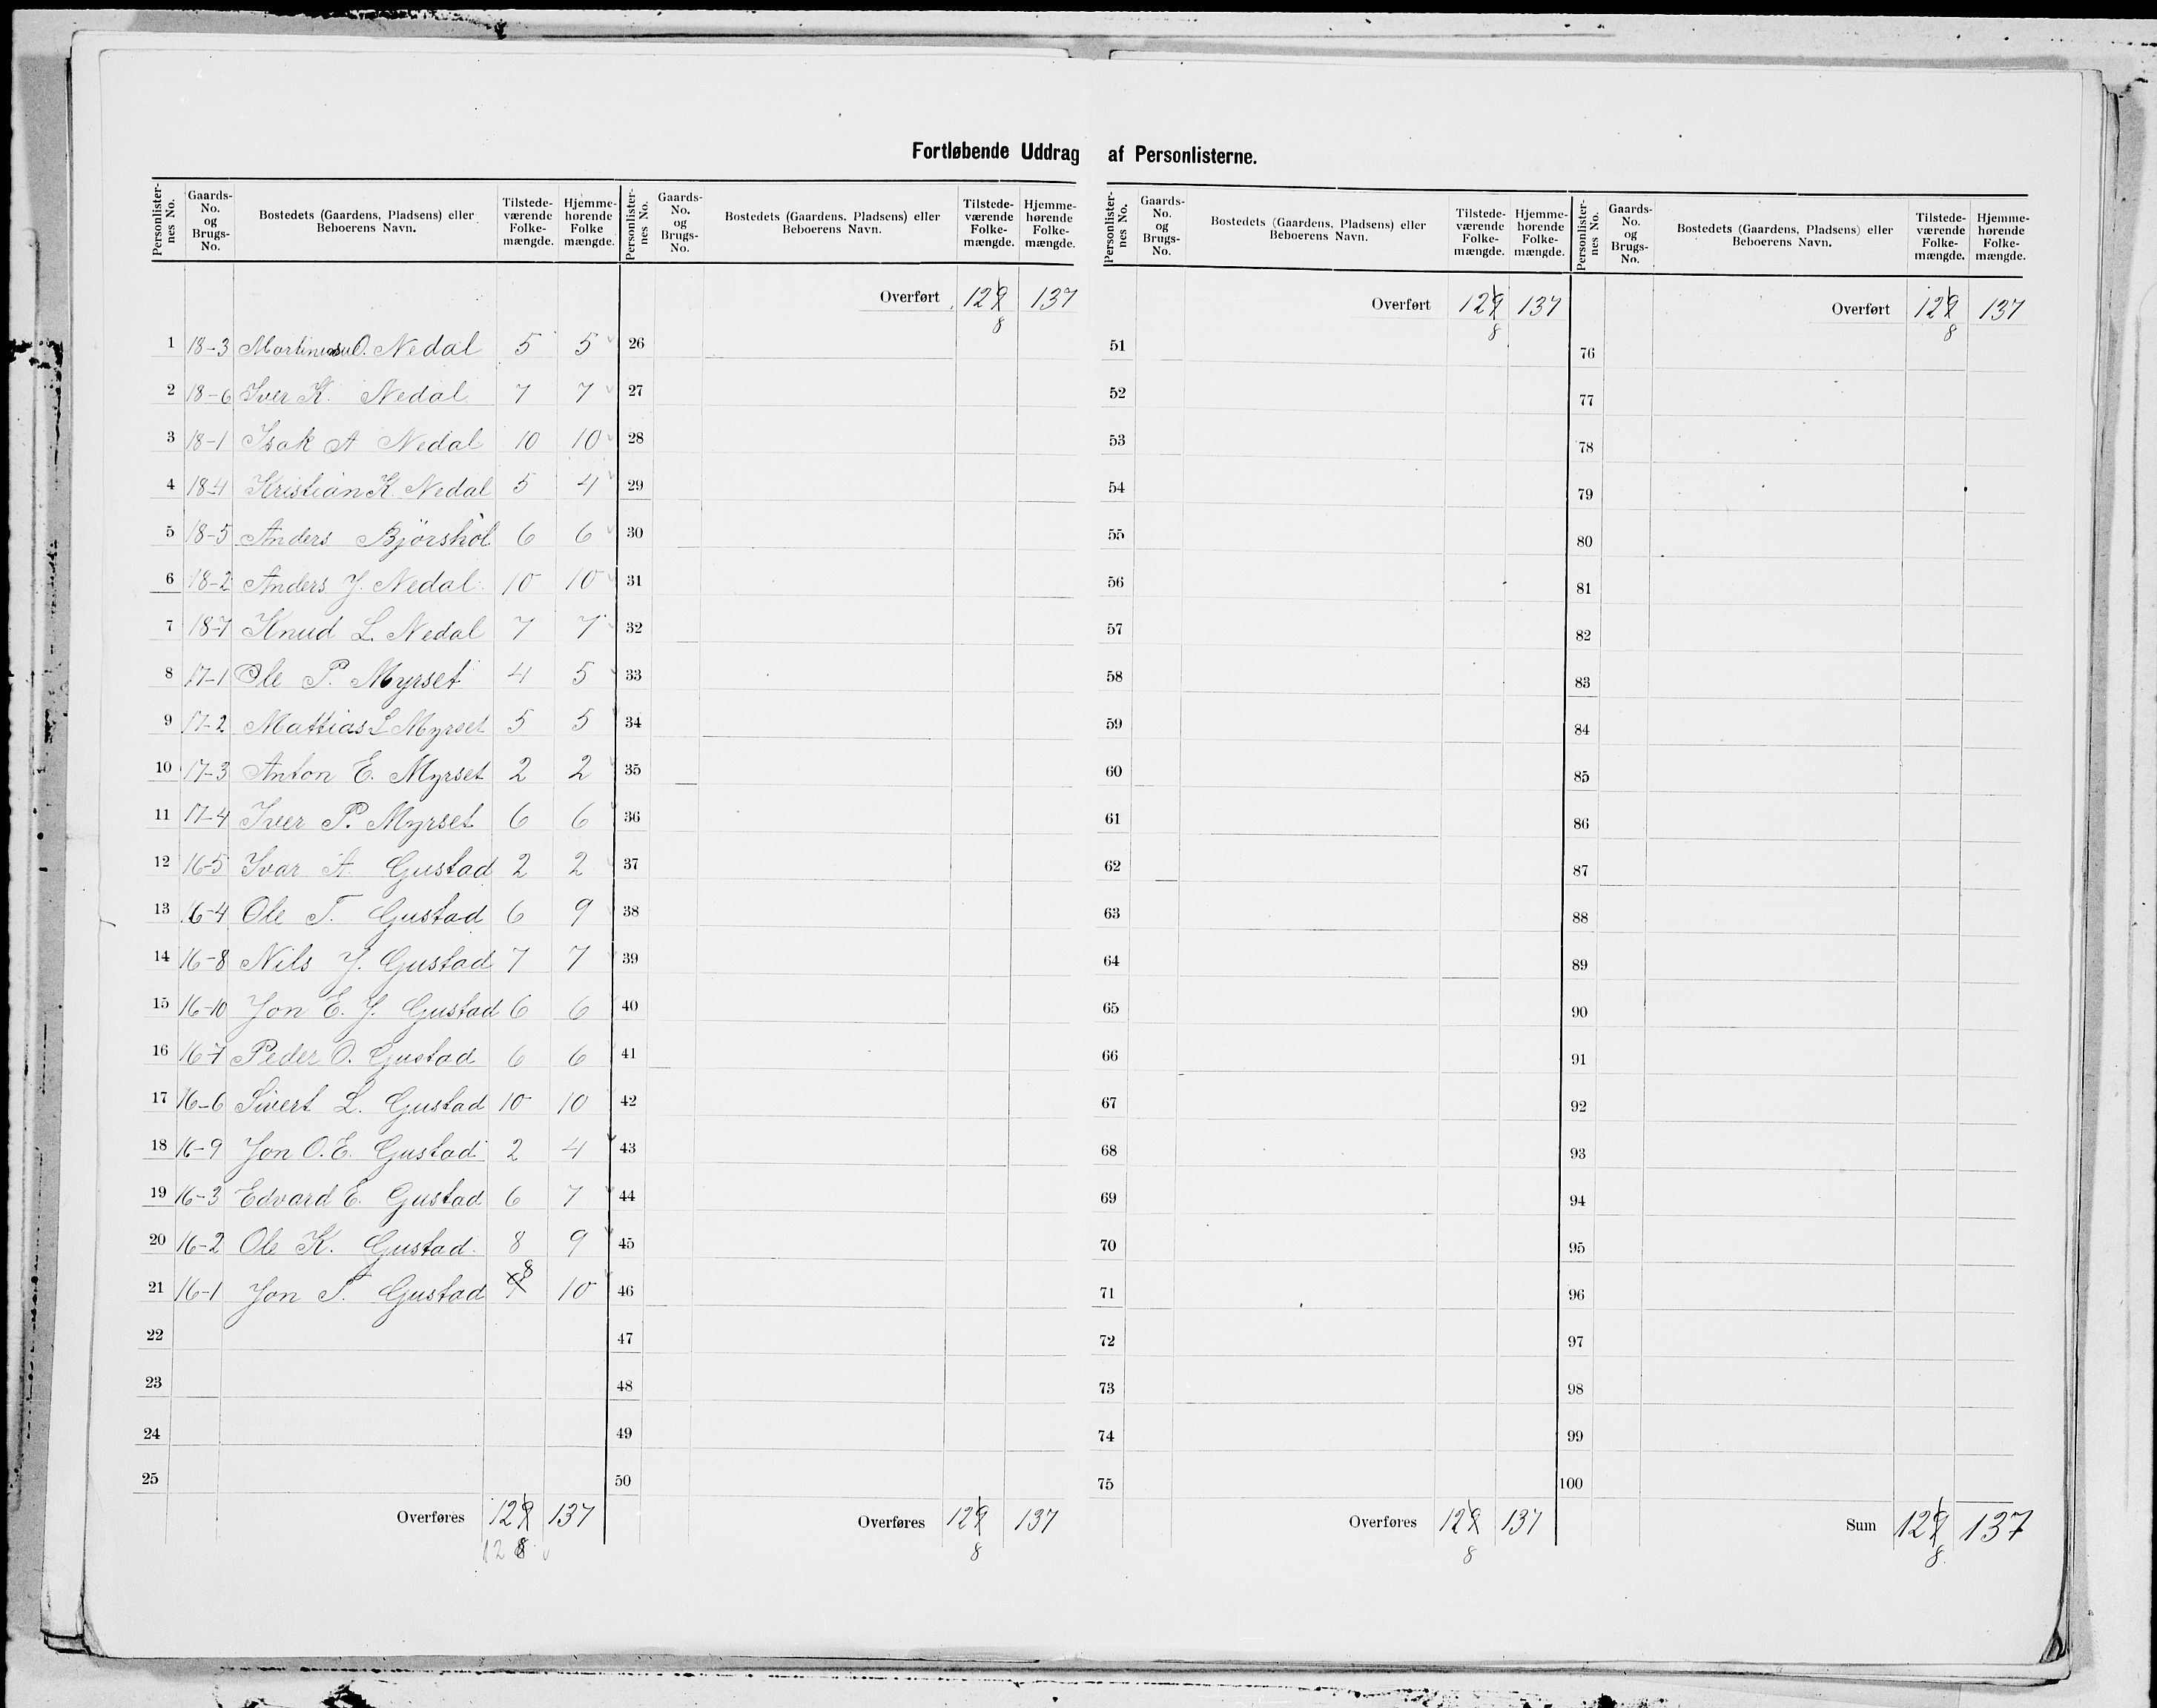 Fortløbende Uddrag af Personlisterne.
Personlister-nes No. Gaards-No. og Brugs-No. Bostedets (Gaardens, Pladsens) eller Beboerens Navn. Tilstede-værende Folke-mængde. Hjemme-hørende Folke mængde. Personlister-nes No. Gaards-No. og Brugs-No. Bostedets (Gaardens, Pladsens) eller Beboerens Navn. Tilstede-værende Folke-mængde. Hjemme-hørende Folke-mængde. Personlister-nes No. Gaards-No. og Brugs-No. Bostedets (Gaardens, Pladsens) eller Beboerens Navn. Tilstede-værende Folke-mængde. Hjemme-hørende Folke-mængde. Personlister-nes No. Gaards-No. og Brugs-No. Bostedets (Gaardens, Pladsens) eller Beboerens Navn. Tilstede-værende Folke-mængde. Hjemme-hørende Folke-mængde.
1 18-3 O. Nedal 5 5
2 18-6 Iver K. Nedal 7 7
3 18-1 Isak A Nedal 10 10
4 18-4 Kristian K. Nedal 5 4
5 18-5 Anders Björshol 6 6
6 18-2 Anders J. Nedal 10 10
7 18-7 Knud L. Nedal 7 7
8 17-1 Ole P. Myrset 4 5
9 17-2 Mattias L Myrset 5 5
10 17-3 Anton E. Myrset 2 2
11 17-4 Iver P. Myrset 6 6
12 16-5 Ivar A. Gustad 2 2
13 16-4 Ole T. Gustad 6 9
14 16-8 Nils J. Gustad 7 7
15 16-10 Jon E. J. Gustad 6 6
16 16-7 Peder O. Gustad 6 6
17 16-6 Sivert L. Gustad 10 10
18 16-9 Jon O. E. Gustad 2 4
19 16-3 Edvard E. Gustad 6 7
20 16-2 Ole K. Gustad. 8 9
21 16-1 Jon T. Gustad 9 8 10
22
23
24
25
Overføres 129 137
128
Overført 129 137
8
26
27
28
29
30
31
32
33
34
35
36
37
38
39
40
41
42
43
44
45
46
47
48
49
50
Overføres 129 137
8
Overført 129 137
8
51
52
53
54
55
56
57
58
59
60
61
62
63
64
65
66
67
68
69
70
71
72
73
74
75
Overføres 129 137
8
Overført 129 137
8
76
77
78
79
80
81
82
83
84
85
86
87
88
89
90
91
92
93
94
95
96
97
98
99
100
Sum 129 137
8